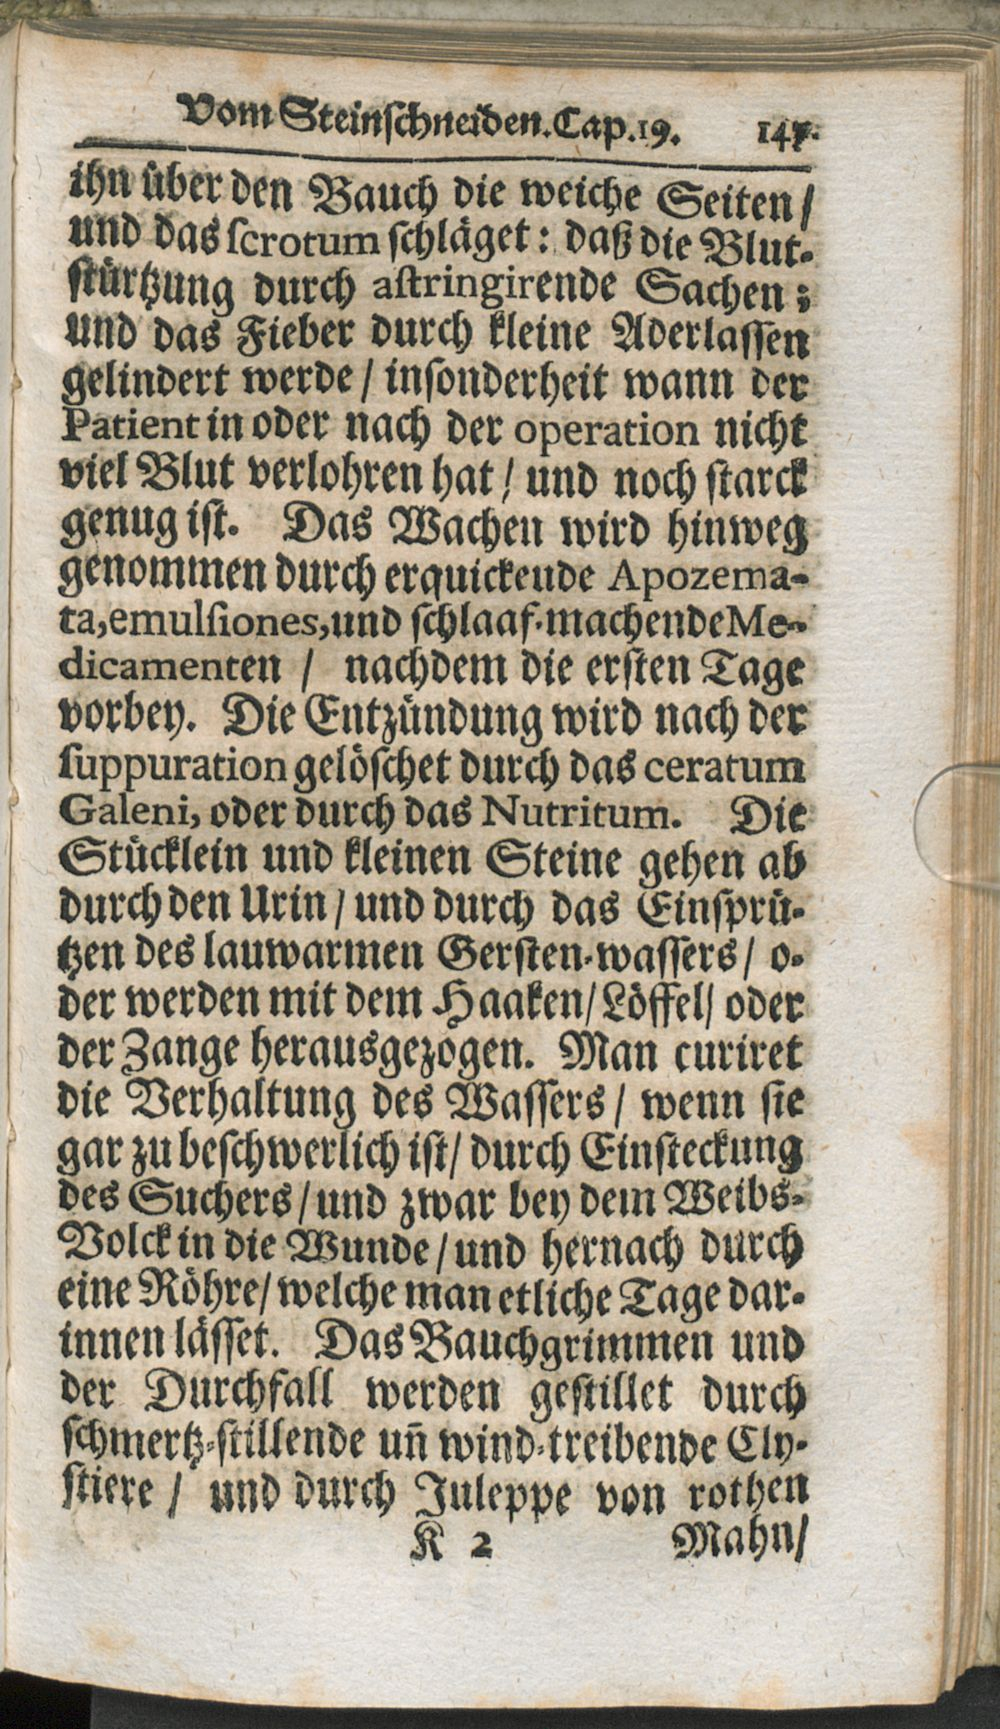 Vom Steinschneiden. Cap. 19. 147.
ihn über den Bauch die weiche Seiten /
und das scrotum schläget: daß die Blut-
stürtzung durch astringirende Sachen;
und das Fieber durch kleine Aderlassen
gelindert werde / insonderheit wann der
Patient in oder nach der operation nicht
viel Blut verlohren hat / und noch starck
genug ist. Das Wachen wird hinweg
genommen durch erquickende Apozema-
ta, emulsiones, und schlaaf-machende Me-
dicamenten / nachdem die ersten Tage
vorbey. Die Entzündung wird nach der
suppuration gelöschet durch das ceratum
Galeni, oder durch das Nutritum. Die
Stücklein und kleinen Steine gehen ab
durch den Urin / und durch das Einsprü-
tzen des lauwarmen Gersten-wassers / o-
der werden mit dem Haaken / Löffel / oder
der Zange herausgezogen. Man curiret
die Verhaltung des Wassers / wenn sie
gar zu beschwerlich ist / durch Einsteckung
des Suchers / und zwar bey dem Weibs-
Volck in die Wunde / und hernach durch
eine Röhre / welche man etliche Tage dar-
innen lässet. Das Bauchgrimmen und
der Durchfall werden gestillet durch
schmertz-stillende uñ wind-treibende Cly-
stiere / und durch Juleppe von rothen
K 2 Mahn /